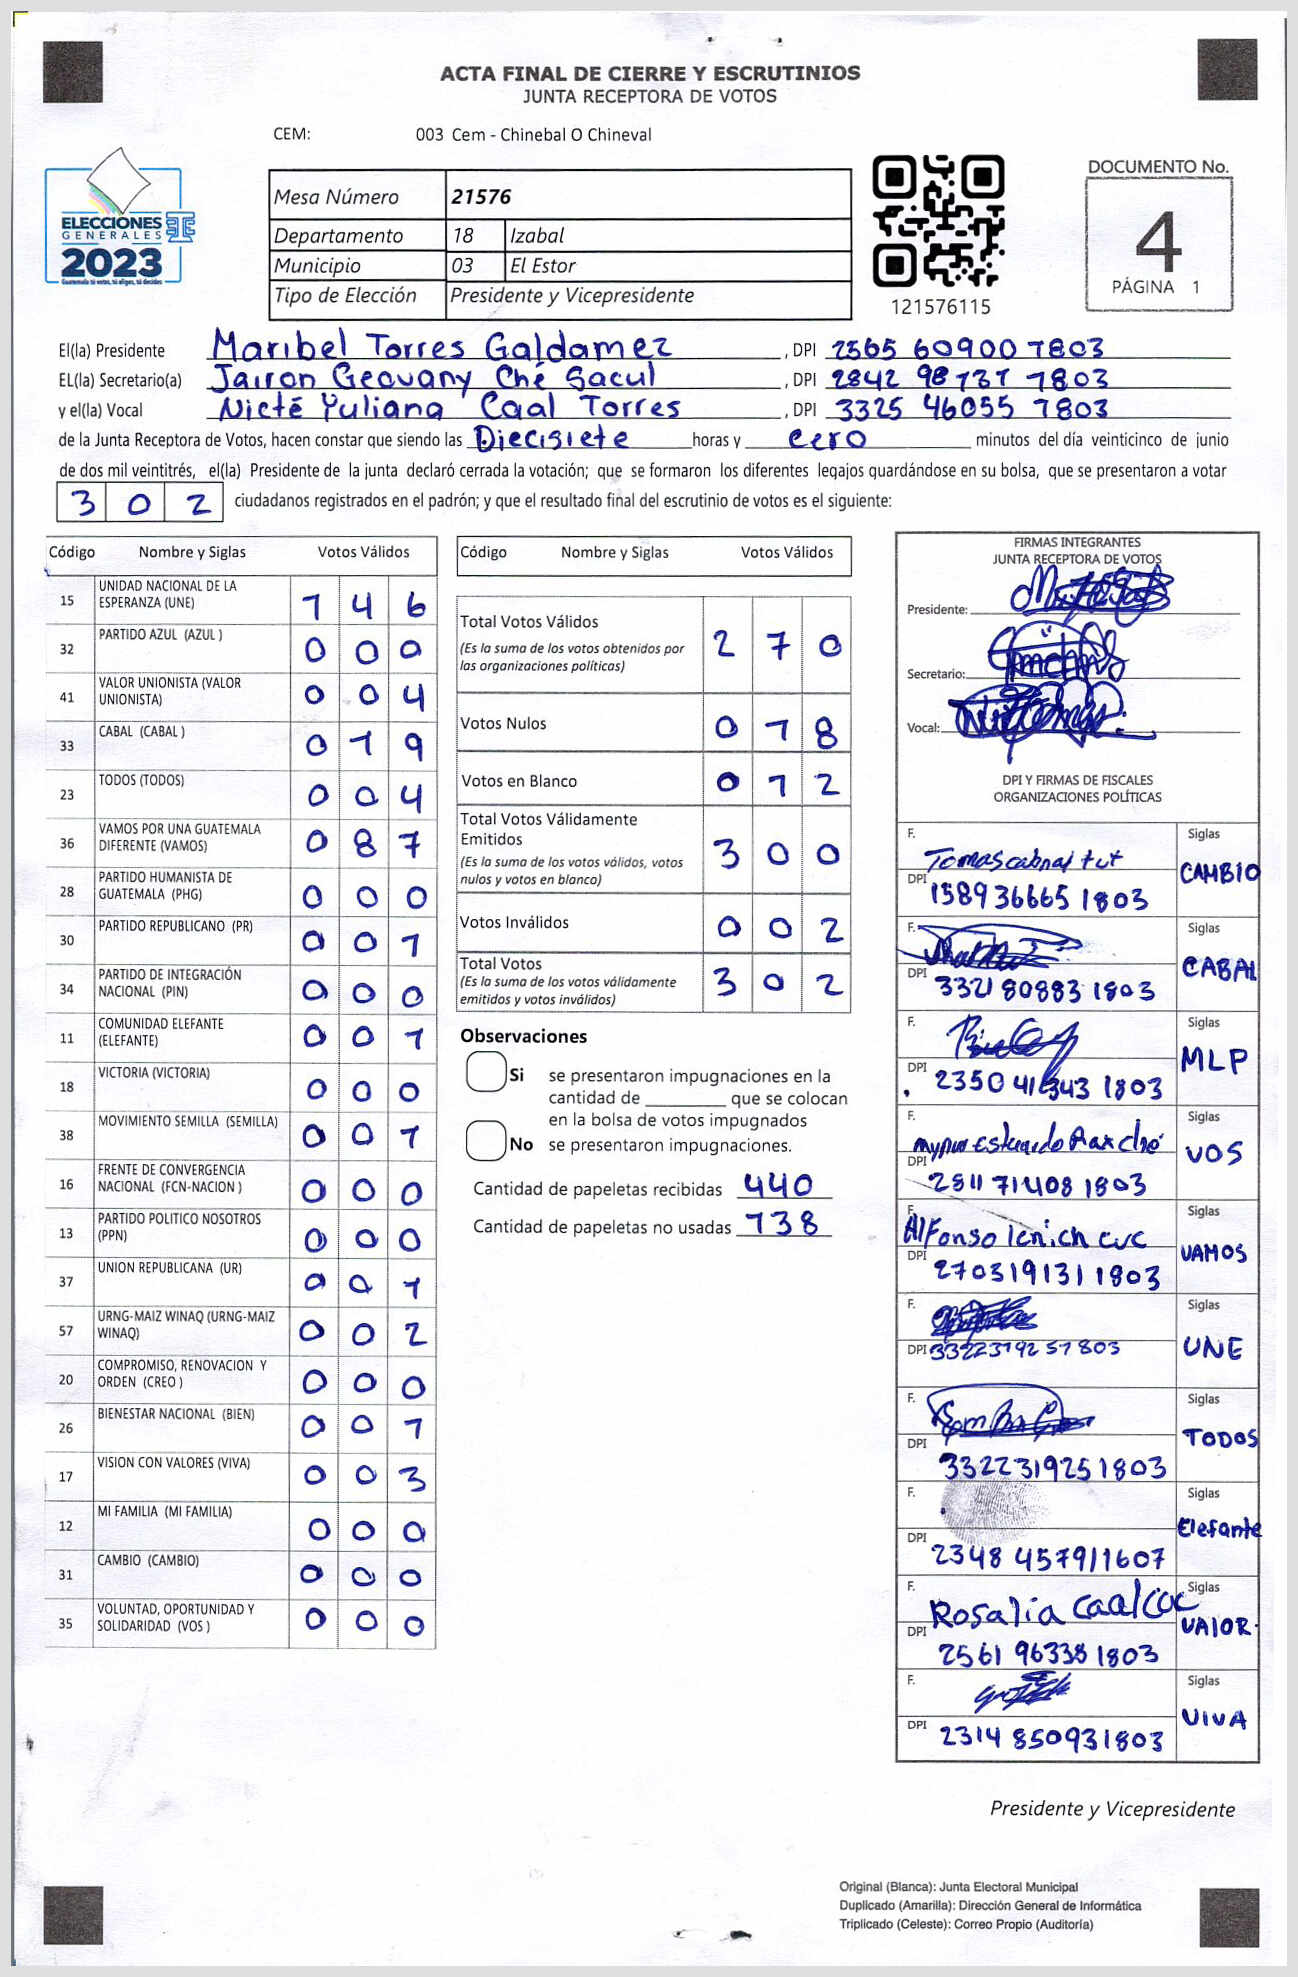 ACTA FINAL DE CIERRE Y ESCRUTINIOS
JUNTA RECEPTORA DE VOTOS
CEM: 003 Cem - Chinebal O Chineval
ELECCIONES
GENERALES
2023
Guatemala tú votas, tú eliges, tú decides
Mesa Número 21576
Departamento 18 Izabal
Municipio 03 El Estor
Tipo de Elección Presidente y Vicepresidente
121576115
DOCUMENTO No.
4
PÁGINA 1
El(la) Presidente Maribel Torres Galdamez , DPI 2565 60900 1803
EL(la) Secretario(a) Jairon Geovany Ché Sacul , DPI 2842 98737 1803
y el(la) Vocal Nicté Yuliana Caal Torres , DPI 3325 46055 1803
de la Junta Receptora de Votos, hacen constar que siendo las Diecisiete horas y cero minutos del día veinticinco de junio
de dos mil veintitrés, el(la) Presidente de la junta declaró cerrada la votación; que se formaron los diferentes legajos guardándose en su bolsa, que se presentaron a votar
302 ciudadanos registrados en el padrón; y que el resultado final del escrutinio de votos es el siguiente:
Código Nombre y Siglas Votos Válidos
15 UNIDAD NACIONAL DE LA ESPERANZA (UNE) 1 4 6
32 PARTIDO AZUL (AZUL ) 0 0 0
41 VALOR UNIONISTA (VALOR UNIONISTA) 0 0 4
33 CABAL (CABAL ) 0 1 9
23 TODOS (TODOS) 0 0 4
36 VAMOS POR UNA GUATEMALA DIFERENTE (VAMOS) 0 8 7
28 PARTIDO HUMANISTA DE GUATEMALA (PHG) 0 0 0
30 PARTIDO REPUBLICANO (PR) 0 0 1
34 PARTIDO DE INTEGRACIÓN NACIONAL (PIN) 0 0 0
11 COMUNIDAD ELEFANTE (ELEFANTE) 0 0 1
18 VICTORIA (VICTORIA) 0 0 0
38 MOVIMIENTO SEMILLA (SEMILLA) 0 0 1
16 FRENTE DE CONVERGENCIA NACIONAL (FCN-NACION ) 0 0 0
13 PARTIDO POLITICO NOSOTROS (PPN) 0 0 0
37 UNION REPUBLICANA (UR) 0 0 1
57 URNG-MAIZ WINAQ (URNG-MAIZ WINAQ) 0 0 2
20 COMPROMISO, RENOVACION Y ORDEN (CREO ) 0 0 0
26 BIENESTAR NACIONAL (BIEN) 0 0 1
17 VISION CON VALORES (VIVA) 0 0 3
12 MI FAMILIA (MI FAMILIA) 0 0 0
31 CAMBIO (CAMBIO) 0 0 0
35 VOLUNTAD, OPORTUNIDAD Y SOLIDARIDAD (VOS ) 0 0 0
Código Nombre y Siglas Votos Válidos
Total Votos Válidos 2 7 0
(Es la suma de los votos obtenidos por
las organizaciones políticas)
Votos Nulos 0 1 8
Votos en Blanco 0 1 2
Total Votos Válidamente
Emitidos 3 0 0
(Es la suma de los votos válidos, votos
nulos y votos en blanco)
Votos Inválidos 0 0 2
Total Votos 3 0 2
(Es la suma de los votos válidamente
emitidos y votos inválidos)
Observaciones
Si se presentaron impugnaciones en la
cantidad de ________ que se colocan
en la bolsa de votos impugnados
No se presentaron impugnaciones.
Cantidad de papeletas recibidas 440
Cantidad de papeletas no usadas 138
FIRMAS INTEGRANTES
JUNTA RECEPTORA DE VOTOS
Presidente:
Secretario:
Vocal:
DPI Y FIRMAS DE FISCALES
ORGANIZACIONES POLÍTICAS
F. Tomas cabnal tut Siglas
DPI 158936665 1803 CAMBIO
F. Siglas
DPI 3321 80883 1803 CABAL
F. Siglas
DPI 2350 41343 1803 MLP
F. Siglas
DPI 2811 71408 1803 VOS
F. Alfonso Siglas
DPI 2703191311803 VAMOS
F. Siglas
DPI 3322319251803 UNE
F. Siglas
DPI 3322319251803 TODOS
F. Siglas
DPI 2348 457911607 Elefante
F. Rosalia Caal Cuc Siglas
DPI 2561 96338 1803 VALOR.
F. Siglas
DPI 2314 850931803 VIVA
Presidente y Vicepresidente
Original (Blanca): Junta Electoral Municipal
Duplicado (Amarilla): Dirección General de Informática
Triplicado (Celeste): Correo Propio (Auditoría)